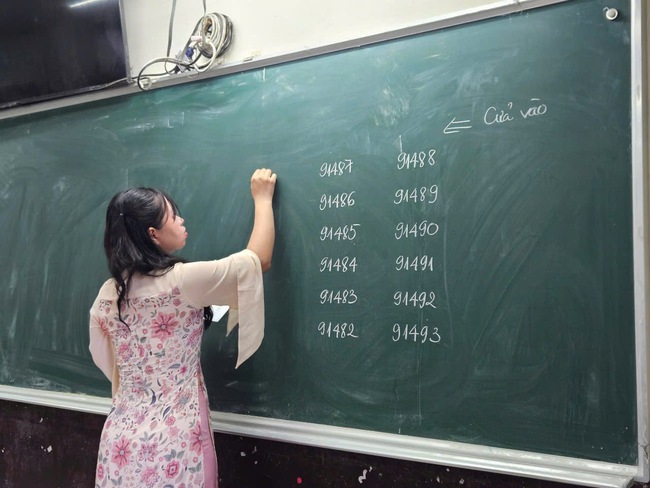 ⇐ Cửa vào
91487 91488
91486 91489
91485 91490
91484 91491
91483 91492
91482 91493